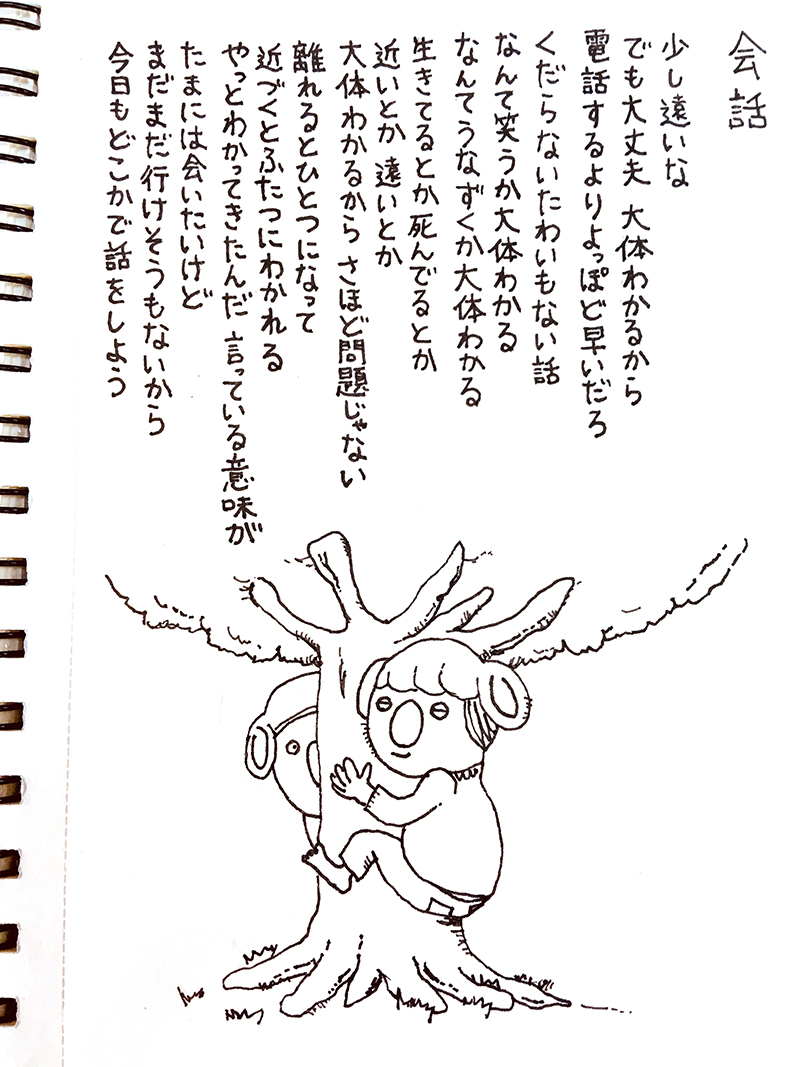 会話
少し遠いな
でも大丈夫 大体わかるから
電話するよりよっぽど早いだろ
くだらないたわいもない話
なんて笑うか大体わかる
なんてうなずくか大体わかる
生きてるとか死んでるとか
近いとか 遠いとか
大体わかるから さほど問題じゃない
離れるとひとつになって
近づくとふたつにわかれる
やっとわかってきたんだ 言っている意味が
たまには会いたいけど
まだまだ行けそうもないから
今日もどこかで話をしよう